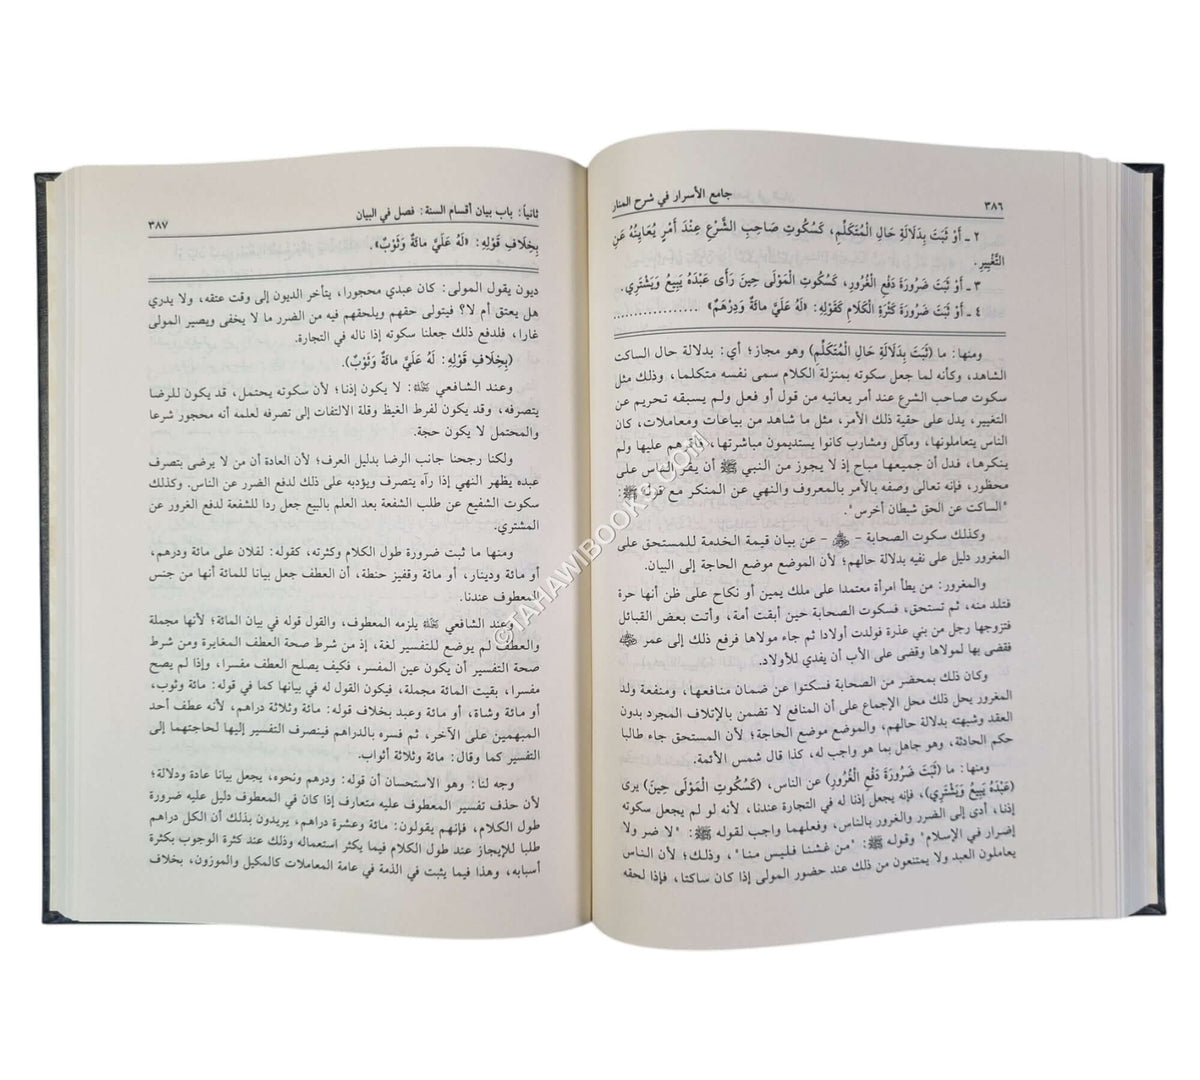 ٣٨٦
جامع الأسرار في شرح المنار
٢ ـ أَوْ ثَبَتَ بِدَلَالَةِ حَالِ الْمُتَكَلِّمِ، كَسُكُوتِ صَاحِبِ الشَّرْعِ عِنْدَ أَمْرٍ يُعَايِنُهُ عَنِ
التَّغْيِيرِ.
٣ ـ أَوْ ثَبَتَ ضَرُورَةَ دَفْعِ الْغُرُورِ، كَسُكُوتِ الْمَوْلَى حِينَ رَأَى عَبْدَهُ يَبِيعُ وَيَشْتَرِي.
٤ ـ أَوْ ثَبَتَ ضَرُورَةَ كَثْرَةِ الْكَلَامِ كَقَوْلِهِ: «لَهُ عَلَيَّ مائَةٌ وَدِرْهَمٌ» ..................
ومنها: ما (ثَبَتَ بِدَلَالَةِ حَالِ الْمُتَكَلِّمِ) وهو مجاز؛ أي: بدلالة حال الساكت
الشاهد، وكأنه لما جعل سكوته بمنزلة الكلام سمى نفسه متكلما، وذلك مثل
سكوت صاحب الشرع عند أمر يعانيه من قول أو فعل ولم يسبقه تحريم عن
التغيير، يدل على حقية ذلك الأمر، مثل ما شاهد من بياعات ومعاملات، كان
الناس يتعاملونها، ومآكل ومشارب كانوا يستديمون مباشرتها، فأقرهم عليها ولم
ينكرها، فدل أن جميعها مباح إذ لا يجوز من النبي ﷺ أن يقر الناس على
محظور، فإنه تعالى وصفه بالأمر بالمعروف والنهي عن المنكر مع قوله ﷺ:
"الساكت عن الحق شيطان أخرس".
وكذلك سكوت الصحابة - ﷺ - عن بيان قيمة الخدمة للمستحق على
المغرور دليل على نفيه بدلالة حالهم؛ لأن الموضع موضع الحاجة إلى البيان.
والمغرور: من يطأ امرأة معتمدا على ملك يمين أو نكاح على ظن أنها حرة
فتلد منه، ثم تستحق، فسكوت الصحابة حين أبقت أمة، وأتت بعض القبائل
فتزوجها رجل من بني عذرة فولدت أولادا ثم جاء مولاها فرفع ذلك إلى عمر
فقضى بها لمولاها وقضى على الأب أن يفدي للأولاد.
وكان ذلك بمحضر من الصحابة فسكتوا عن ضمان منافعها، ومنفعة ولد
المغرور يحل ذلك محل الإجماع على أن المنافع لا تضمن بالإتلاف المجرد بدون
العقد وشبهته بدلالة حالهم، والموضع موضع الحاجة؛ لأن المستحق جاء طالبا
حكم الحادثة، وهو جاهل بما هو واجب له، كذا قال شمس الأئمة.
ومنها: ما (ثَبَتَ ضَرُورَةَ دَفْعِ الْغُرُورِ) عن الناس، (كَسُكُوتِ الْمَوْلَى حِينَ) يرى
(عَبْدَهُ يَبِيعُ وَيَشْتَرِي)، فإنه يجعل إذنا له في التجارة عندنا، لأنه لو لم يجعل سكوته
إذنا، أدى إلى الضرر والغرور بالناس، وفعلهما واجب لقوله ﷺ: "لا ضر ولا
إضرار في الإسلام" وقوله ﷺ: "من غشنا فليس منا"، وذلك؛ لأن الناس
يعاملون العبد ولا يمتنعون من ذلك عند حضور المولى إذا كان ساكتا، فإذا لحقه
ثانياً: باب بيان أقسام السنة: فصل في البيان
٣٨٧
بِخِلَافِ قَوْلِهِ: «لَهُ عَلَيَّ مائَةٌ وَثَوْبٌ».
ديون يقول المولى: كان عبدي محجورا، يتأخر الديون إلى وقت عتقه، ولا يدري
هل يعتق أم لا؟ فيتولى حقهم ويلحقهم فيه من الضرر ما لا يخفى ويصير المولى
غارا، فلدفع ذلك جعلنا سكوته إذا ناله في التجارة.
(بِخِلَافِ قَوْلِهِ: لَهُ عَلَيَّ مائَةٌ وَثَوْبٌ).
وعند الشافعي: لا يكون إذنا؛ لأن سكوته يحتمل، قد يكون للرضا
بتصرفه، وقد يكون لفرط الغيظ وقلة الالتفات إلى تصرفه لعلمه أنه محجور شرعا
والمحتمل لا يكون حجة.
ولكنا رجحنا جانب الرضا بدليل العرف؛ لأن العادة أن من لا يرضى بتصرف
عبده يظهر النهي إذا رآه يتصرف ويؤدبه على ذلك لدفع الضرر عن الناس. وكذلك
سكوت الشفيع عن طلب الشفعة بعد العلم بالبيع جعل ردا للشفعة لدفع الغرور عن
المشتري.
ومنها ما ثبت ضرورة طول الكلام وكثرته، كقوله: لفلان على مائة ودرهم،
أو مائة ودينار، أو مائة وقفيز حنطة، أن العطف جعل بيانا للمائة أنها من جنس
المعطوف عندنا.
وعند الشافعي يلزمه المعطوف، والقول قوله في بيان المائة؛ لأنها مجملة
والعطف لم يوضع للتفسير لغة، إذ من شرط صحة العطف المغايرة ومن شرط
صحة التفسير أن يكون عين المفسر، فكيف يصلح العطف مفسرا، وإذا لم يصح
مفسرا، بقيت المائة مجملة، فيكون القول له في بيانها كما في قوله: مائة وثوب،
أو مائة وشاة، أو مائة وعبد بخلاف قوله: مائة وثلاثة دراهم، لأنه عطف أحد
المبهمين على الآخر، ثم فسره بالدراهم فينصرف التفسير إليها لحاجتهما إلى
التفسير كما وقال: مائة وثلاثة أثواب.
وجه لنا: وهو الاستحسان أن قوله: ودرهم ونحوه، يجعل بيانا عادة ودلالة؛
لأن حذف تفسير المعطوف عليه متعارف إذا كان في المعطوف دليل عليه ضرورة
طول الكلام، فإنهم يقولون: مائة وعشرة دراهم، يريدون بذلك أن الكل دراهم
طلبا للإيجاز عند طول الكلام فيما يكثر استعماله وذلك عند كثرة الوجوب بكثرة
أسبابه، وهذا فيما يثبت في الذمة في عامة المعاملات كالمكيل والموزون، بخلاف
©TAHAWIBOOKS.COM